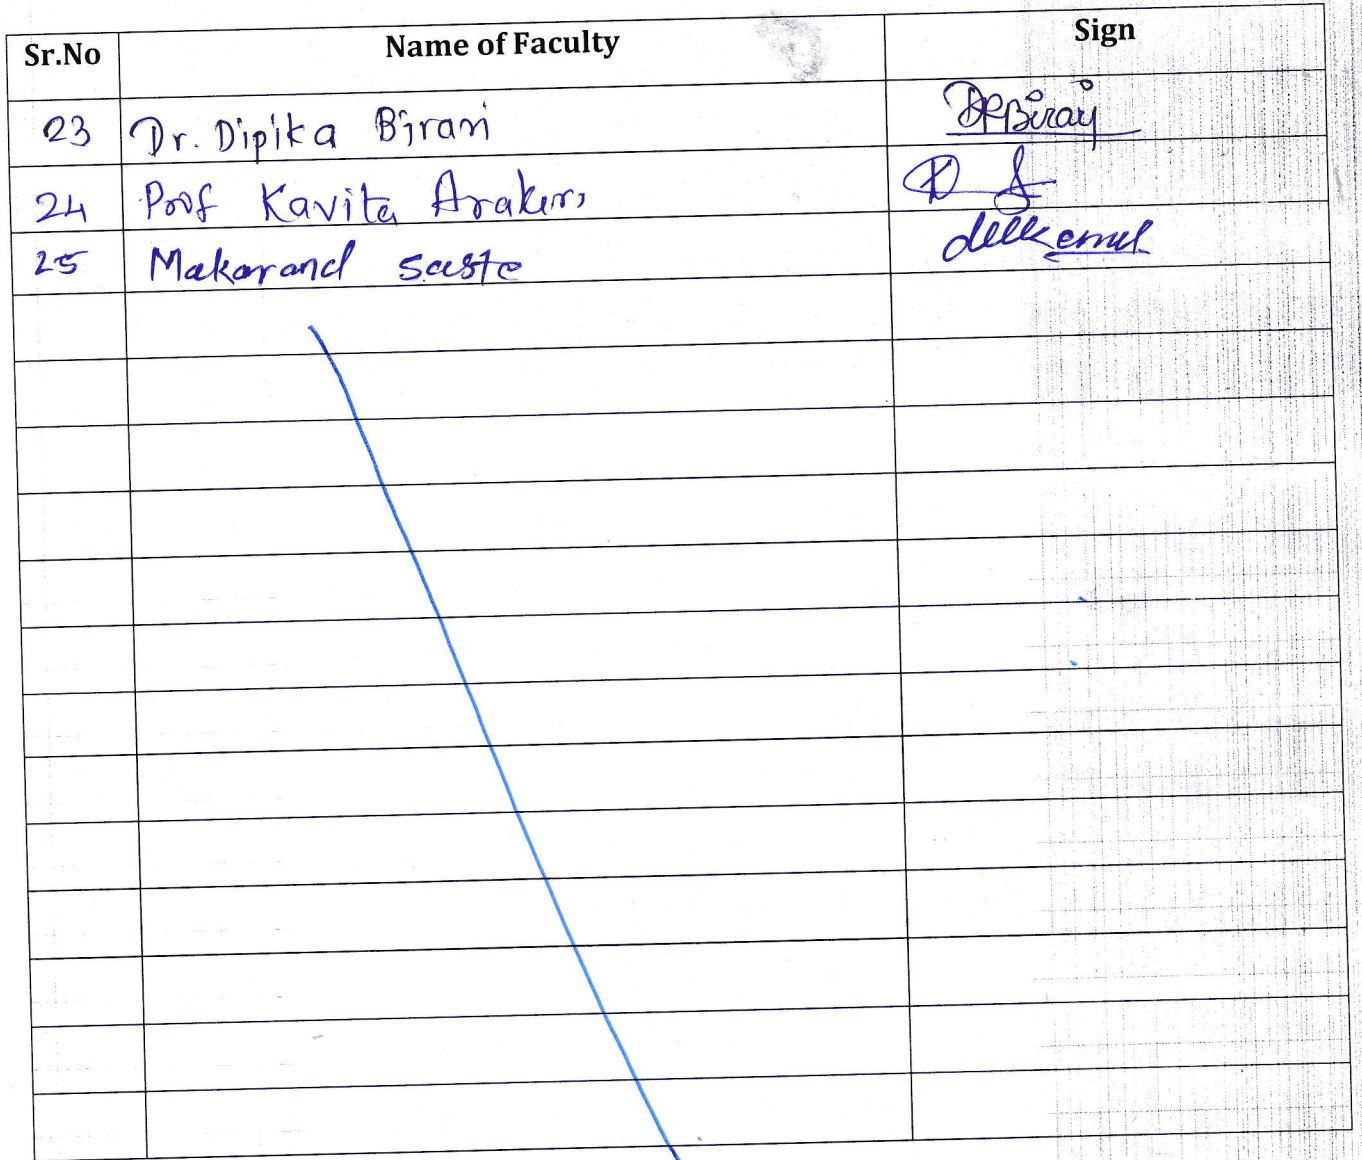 Sr.No Name of Faculty Sign
23 Dr. Dipika Birari DRBiraij
24 Prof Kavita Arakeri
25 Makarand saste